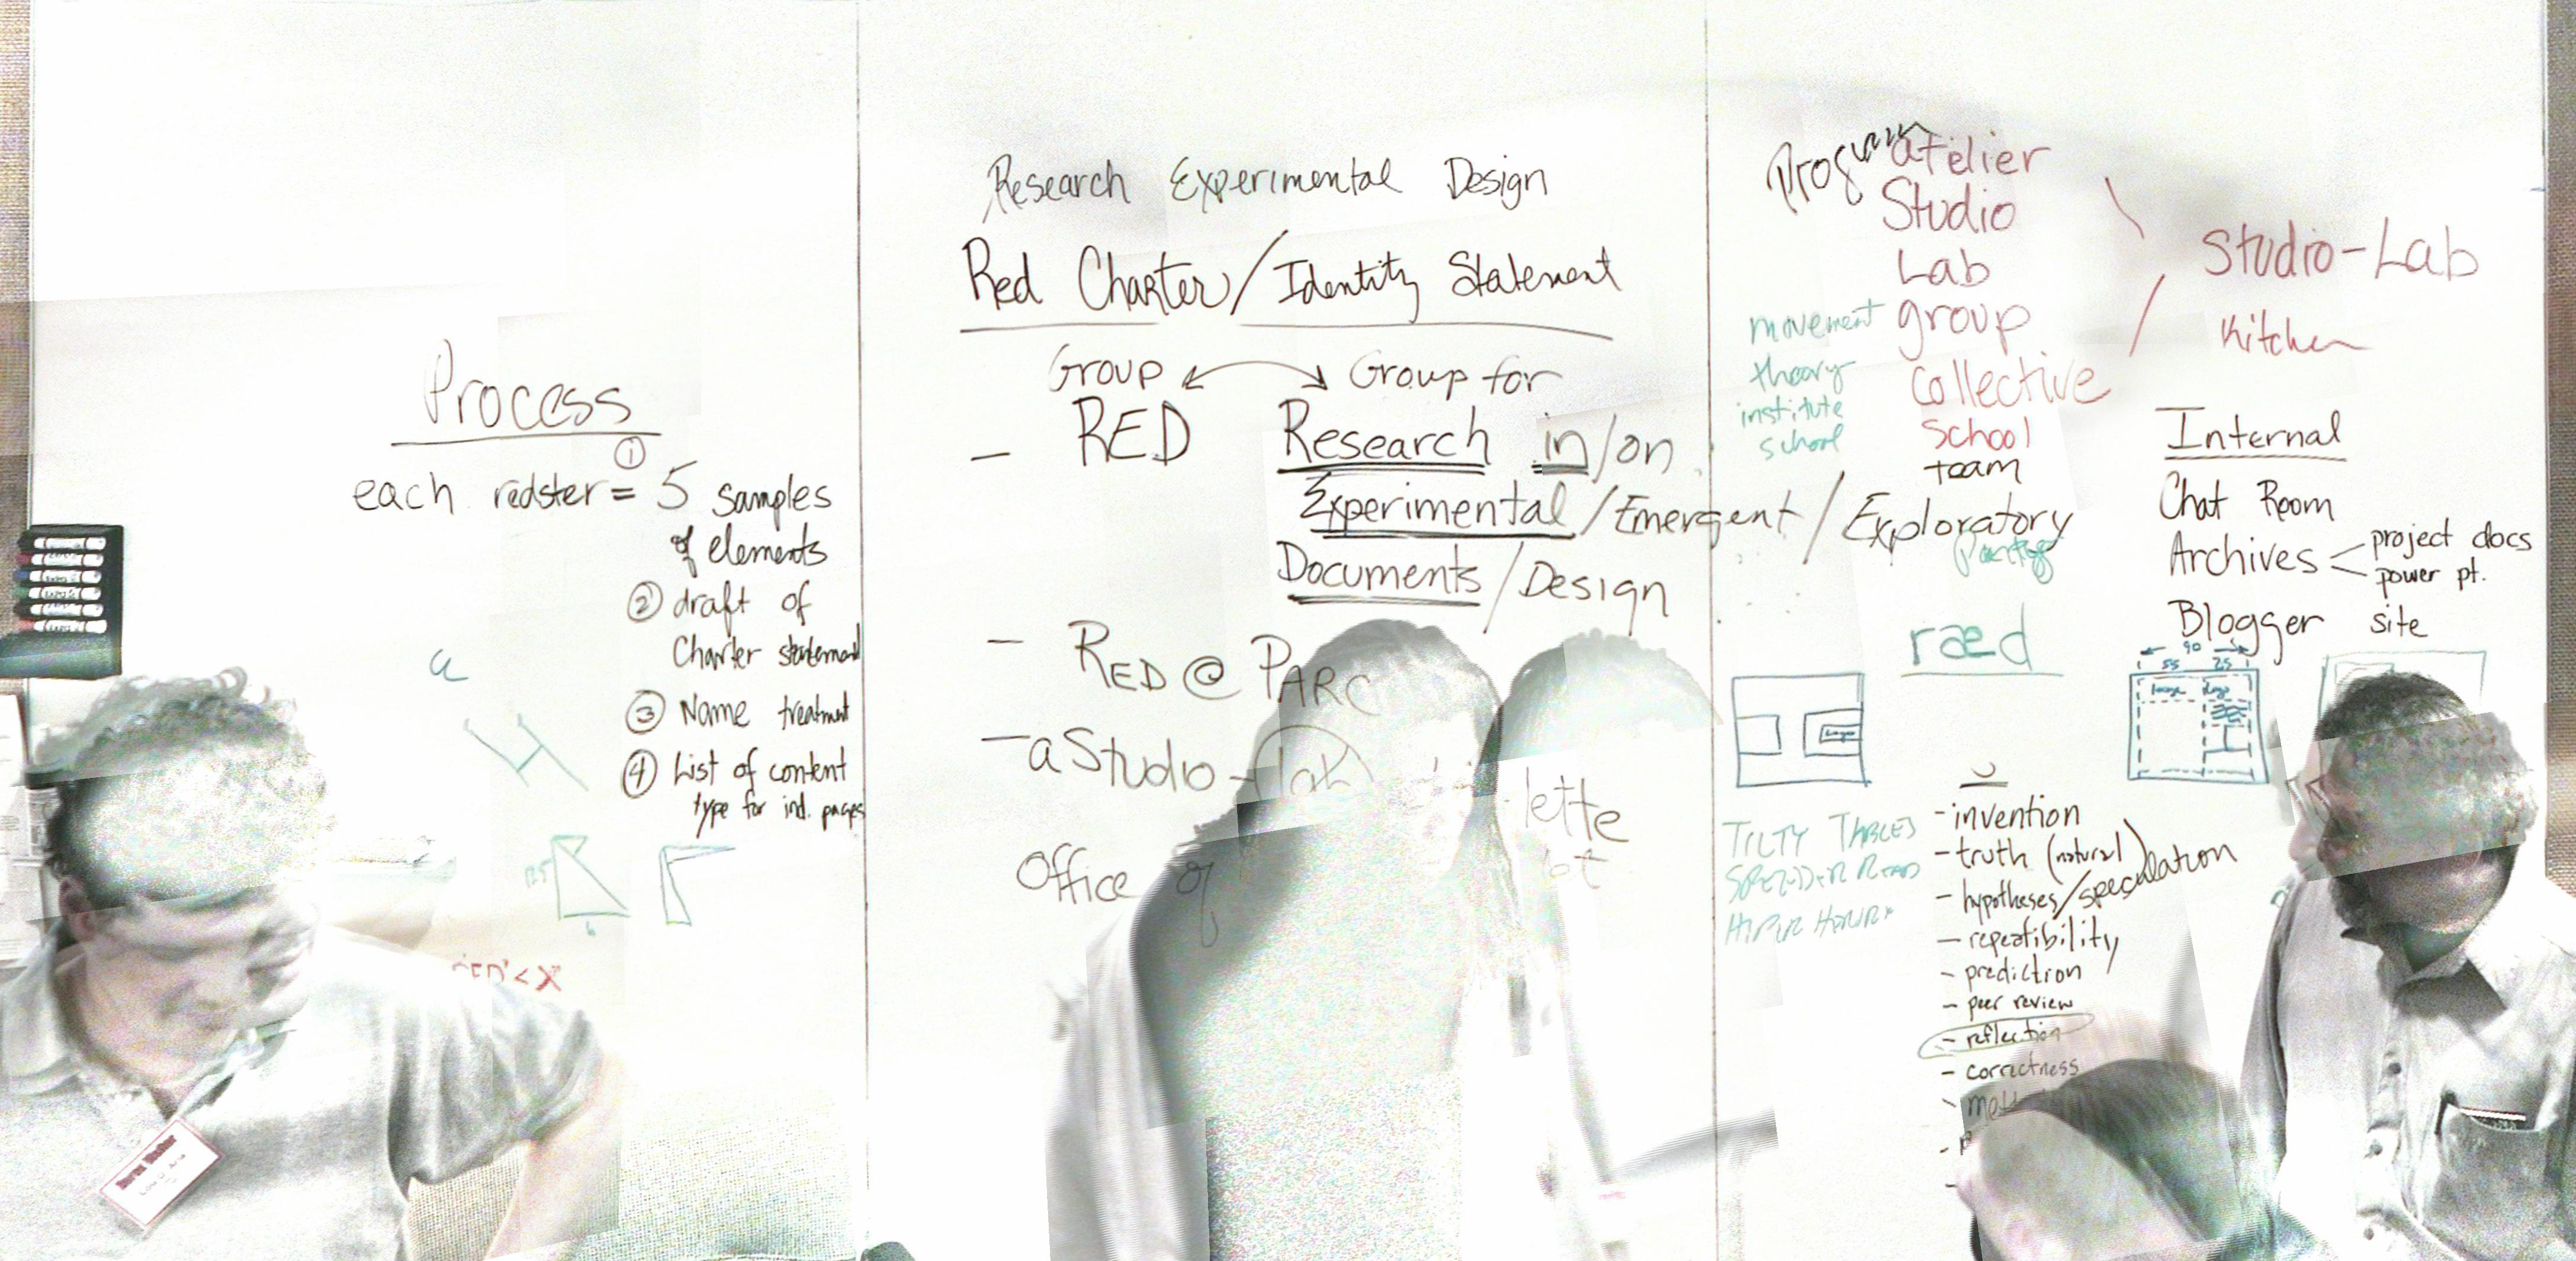 Process
①
each redster = 5 samples
of elements
② draft of
Charter statement
③ Name treatment
④ List of content
type for ind. pages
a
12.5
6
RED < X
Research Experimental Design
Red Charter/Identity Statement
Group Group for
– RED Research in/on
Experimental/Emergent/Exploratory
Documents/Design
– RED @ PARC
– a Studio-lab lette
Office of
Program
atelier
Studio
Lab
group
Collective
School
team
movement
theory
institute
school
Studio-Lab
Kitchen
Internal
Chat Room
Archives < project docs
power pt.
Blogger site
ræd
Logo
90
55 25
Image Logo
TILTY TABLES
SPEEDER READ
- invention
- truth (natural)
- hypotheses/speculation
- repeatibility
- prediction
- peer review
- reflection
- correctness